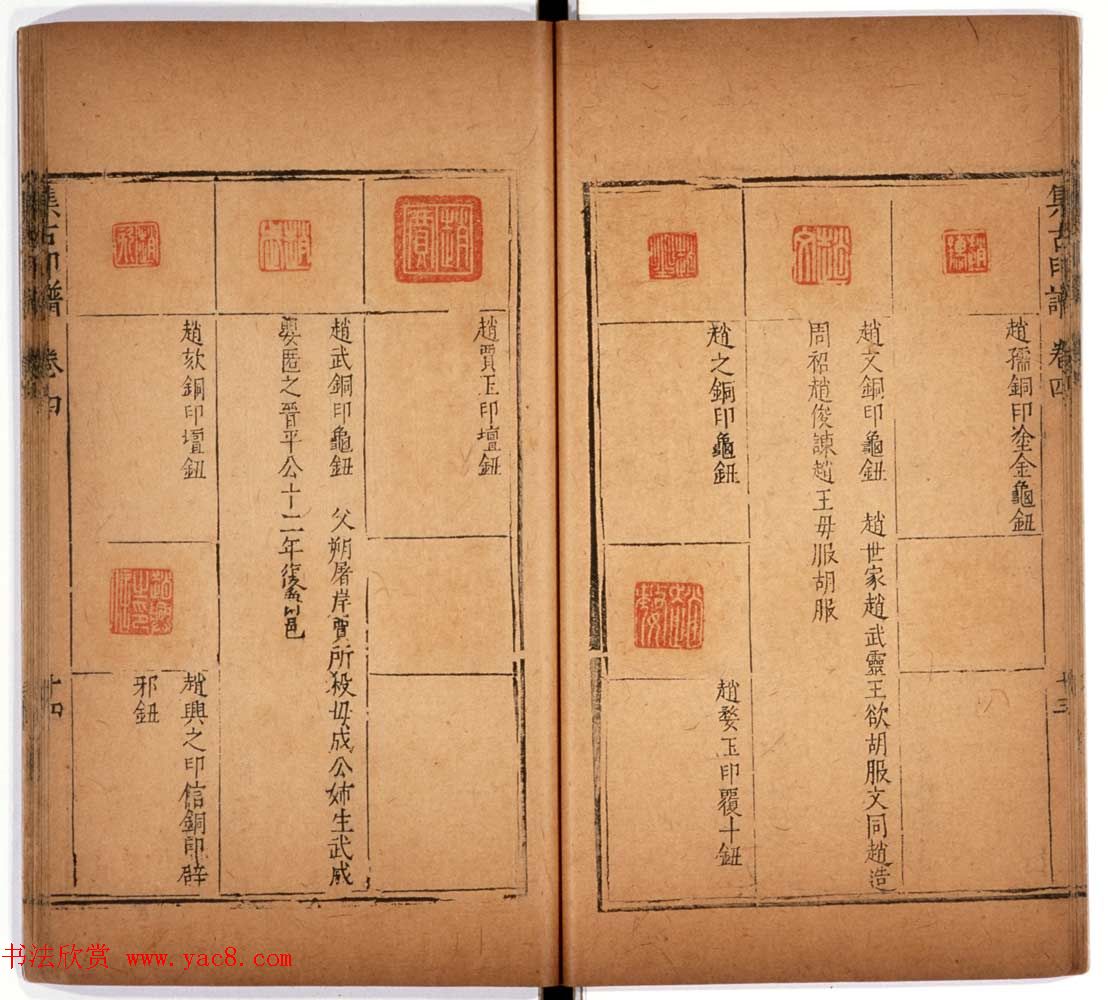 集古印譜 卷四
十三
趙孺銅印塗金龜鈕
趙文銅印龜鈕 趙世家趙武靈王欲胡服文同趙造
周祒趙俊諫趙王毋服胡服
趙之銅印龜鈕
趙婺玉印覆斗鈕
趙賈
趙賈玉印壇鈕
趙武
趙武銅印龜鈕 父朔屠岸賈所殺母成公姊生武成
嬰匿之晉平公十二年
趙欬銅印壇鈕
趙興之印信銅印辟
邪鈕
集古印譜 卷四
十四
书法欣赏 www.yac8.com